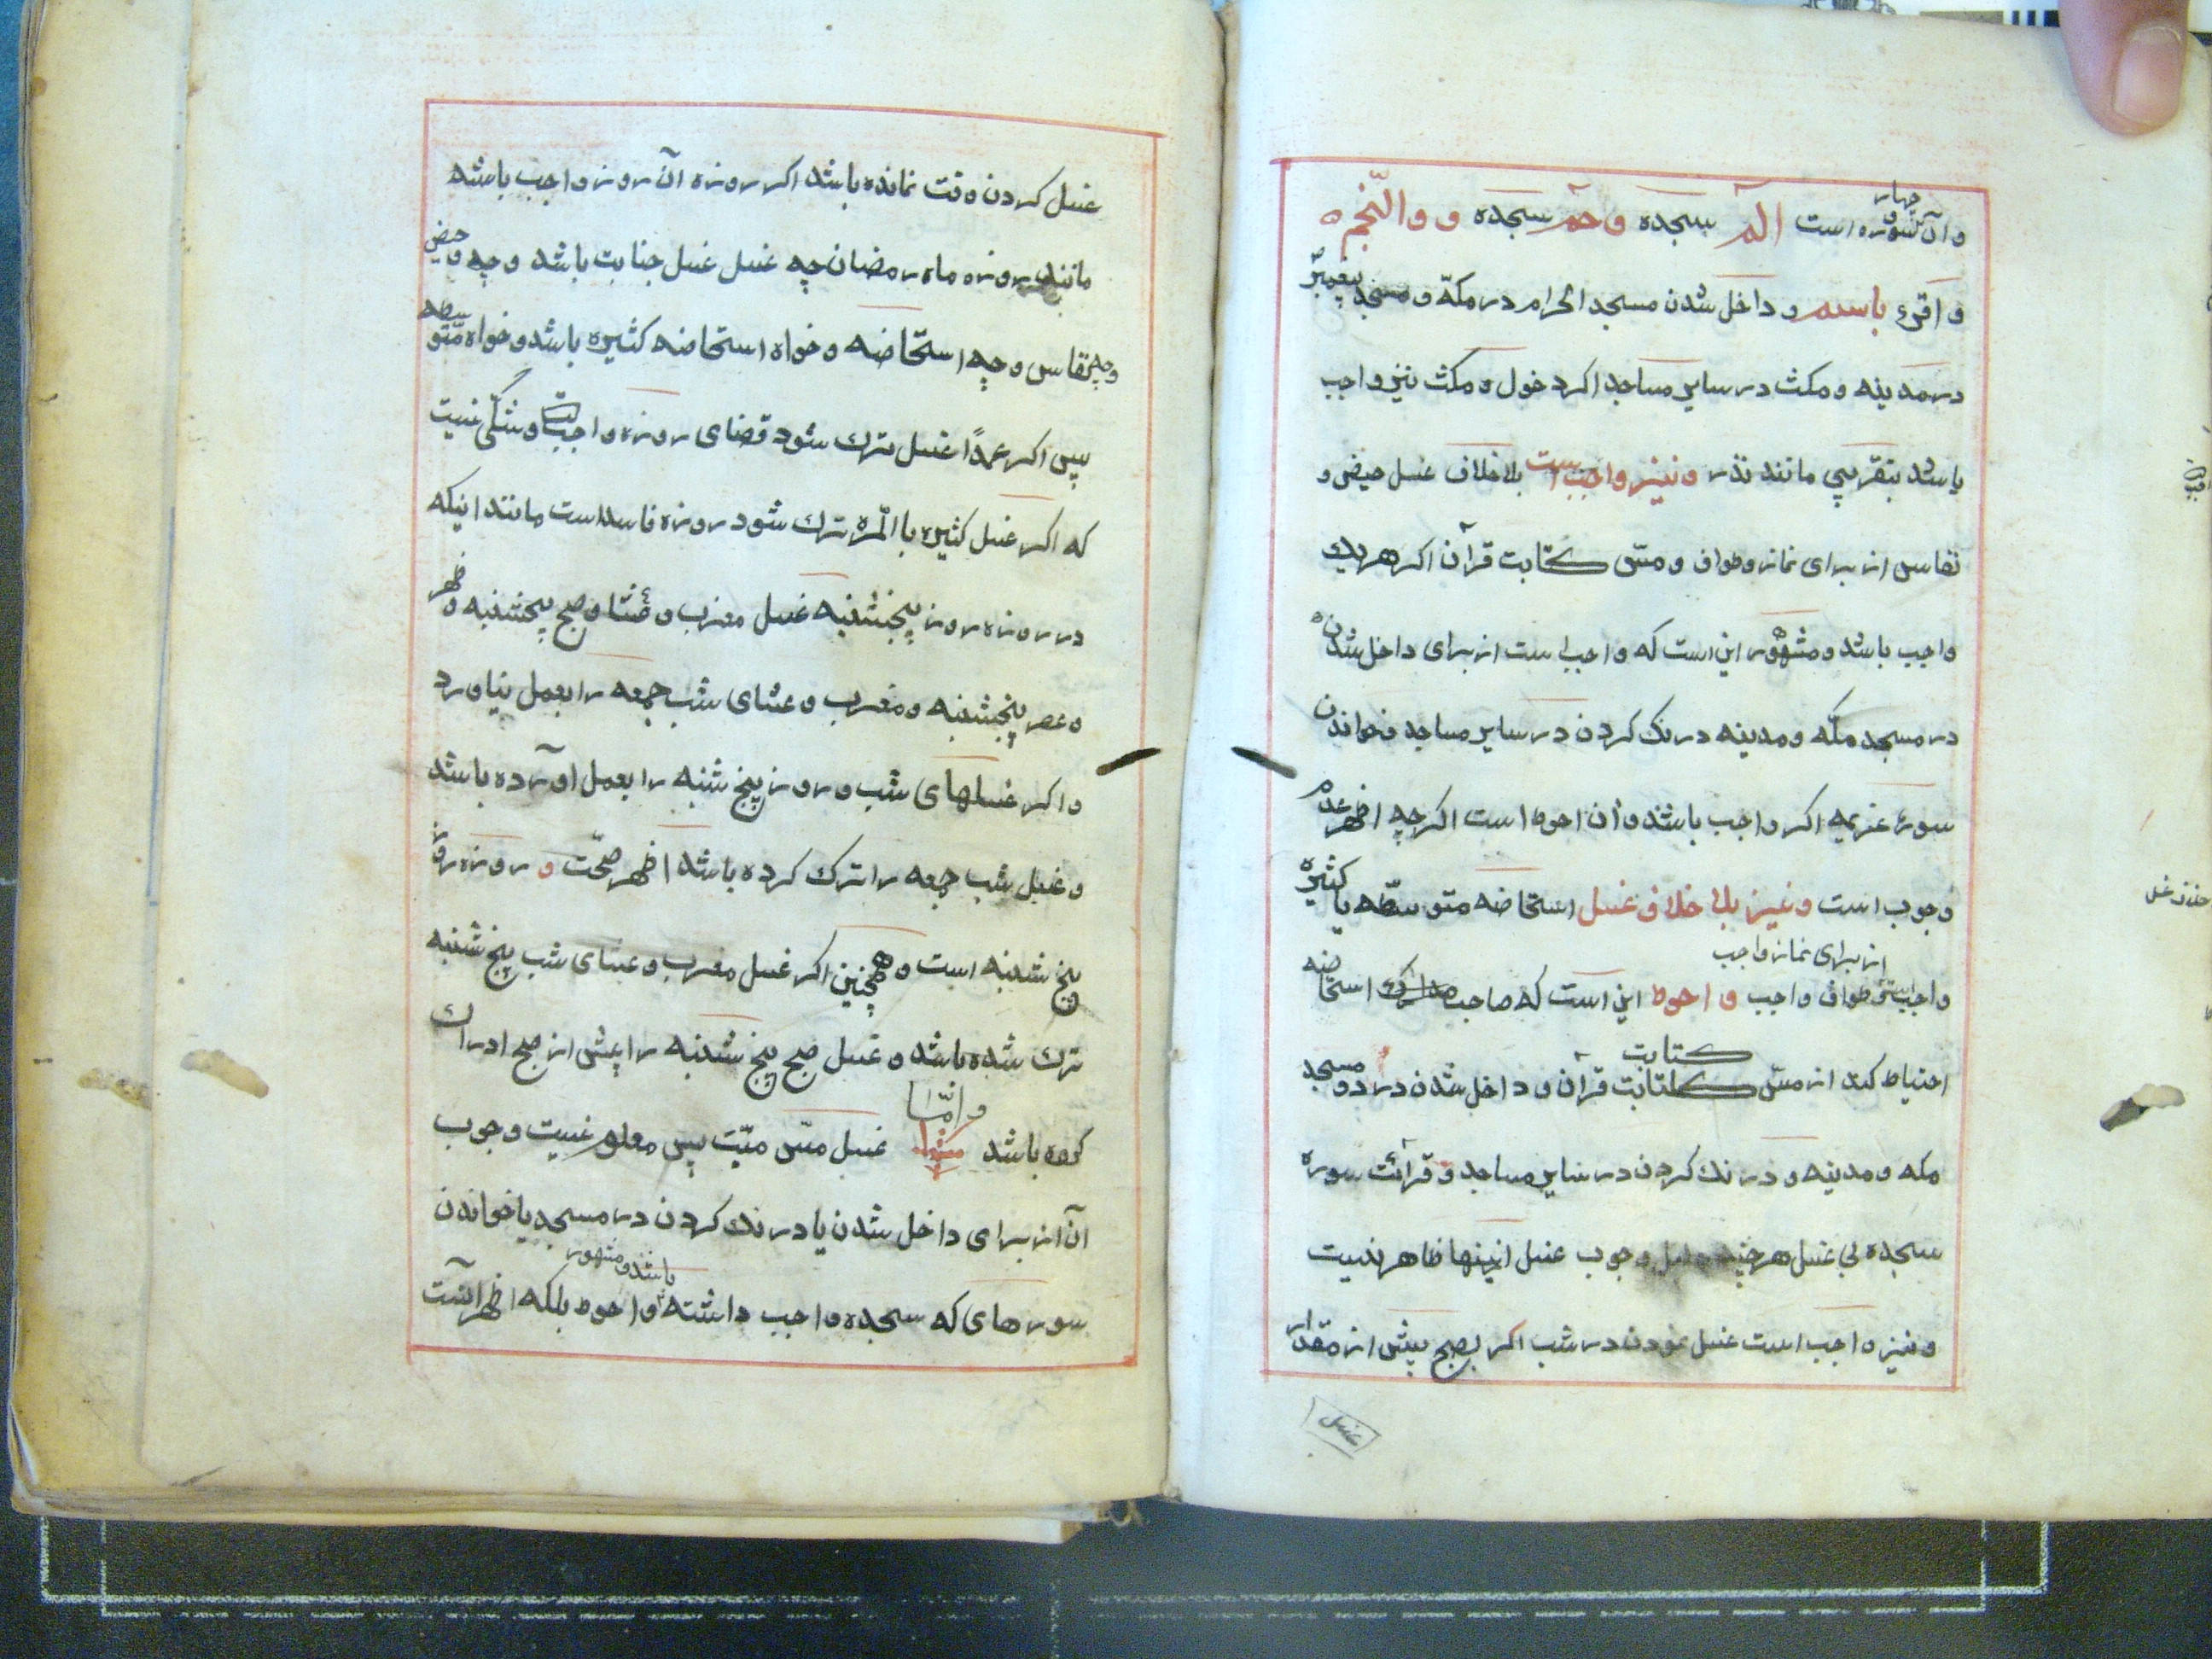 وآن چهار سوره است الم سجده و حم سجده و والنّجم
و اقرء باسم و داخل شدن مسجد الحرام در مکّه و مسجد پیغمبر
در مدینه و مکث در سایر مساجد اکر دخول و مکث نیز واجب
باشد بتقریبی مانند نذر و نیز واجب است بلا خلاف غسل حیض و
نفاس از برای نماز و طواف و مسّ کتابت قرآن اکر هر یک
واجب باشد و مشهور این است که واجب است از برای داخل شدن
در مسجد مکّه و مدینه درنک کردن در سایر مساجد و خواندن
سورۀ عزیمه اکر واجب باشند و ان احوط است اکرچه اظهر عدم
وجوب است و نیز بلا خلاف غسل استحاضه متوسّطه یا کثیره
از برای نماز واجب
واجب است و طواف واجب و احوط این است که صاحب استحاضه
کتابت
احتیاط کند از مسّ کتابت قرآن و داخل شدن در دو مسجد
مکه و مدینه و درنک کردن در سایر مساجد و قرائت سوره
سجده بی غسل هر چند دلیل وجوب غسل اینها ظاهر نیست
و نیز واجب است غسل نمودن در شب اکر بصبح پیش از مقدار
غسل
غسل کردن وقت نمانده باشد اکر روزه آن روز واجب باشد
مانند روزه ماه رمضان چه غسل غسل جنابت باشد و چه حیض
و چه نفاس و چه استحاضه و خواه استحاضه کثیره باشد و خواه متوسطه
پس اکر عمدًا غسل ترک شود قضای روزه واجب است و شکّی نیست
که اکر غسل کثیره با المّره ترک شود روزه فاسد است مانند اینکه
در روزه روز پنجشنبه غسل مغرب و عشا و صبح پنجشنبه و ظهر
و عصر پنجشنبه و مغرب و عشای شب جمعه را بعمل نیاورد
و اکر غسلهای شب و روز پنج شنبه را بعمل اورده باشد
و غسل شب جمعه را ترک کرده باشد اظهر صحّت و روزه روز
پنج شنبه است و همچنین اکر غسل مغرب و عشای شب پنج شنبه
ترک شده باشد و غسل صبح پنج شنبه را پیش از صبح ادراک
کرده باشد و امّا غسل مسّ میّت پس معلوم نیست وجوب
آن از برای داخل شدن یا درنک کردن در مسجد یا خواندن
باشد و مشهور
سورهای که سجده واجب داشته و احوط بلکه اظهر آنست